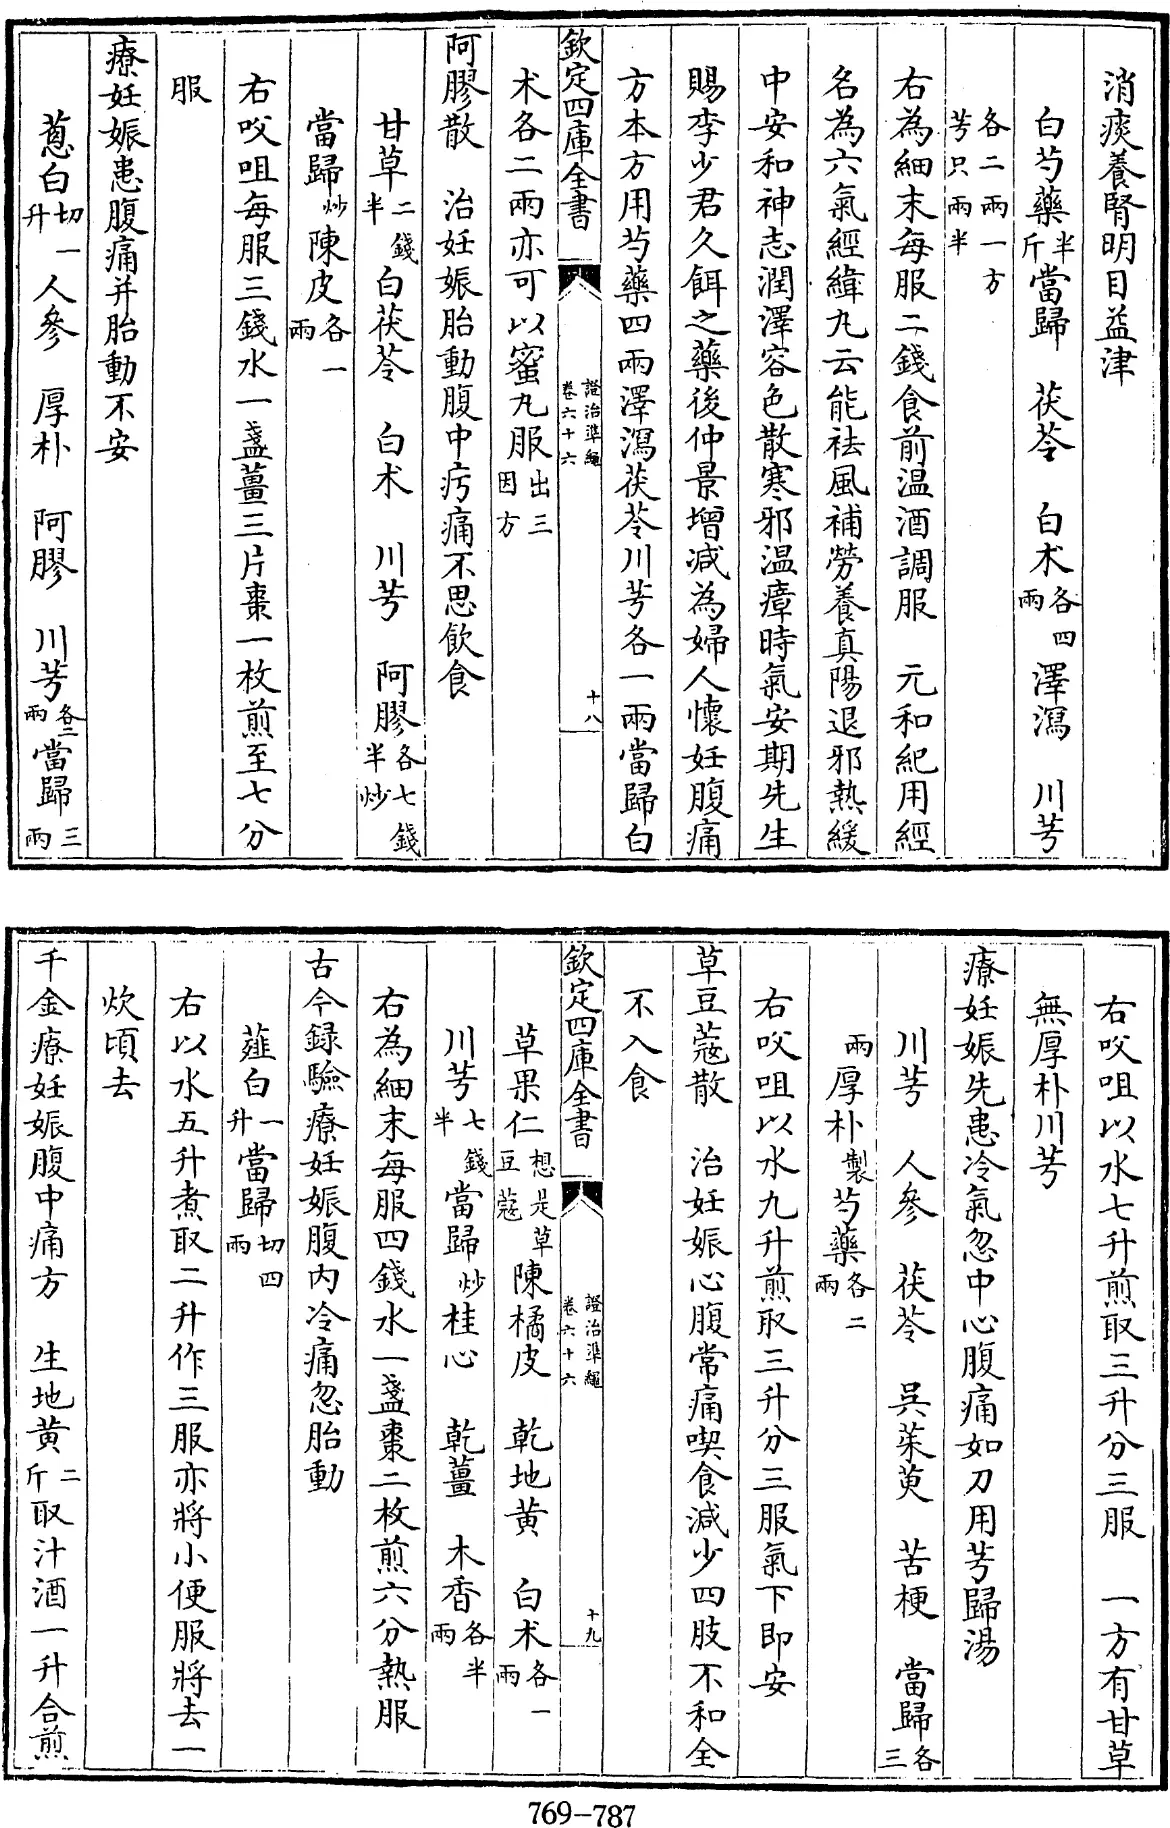 消痰養腎明目益津
白芍藥半斤當歸 茯苓 白术各四兩澤瀉 川芎
各二兩一方芎只兩半
右為細末每服二錢食前温酒調服 元和紀用經
名為六氣經緯丸云能祛風補勞養真陽退邪熱緩
中安和神志潤澤容色散寒邪温瘴時氣安期先生
賜李少君久餌之藥後仲景增減為婦人懷妊腹痛
方本方用芍藥四兩澤瀉茯苓川芎各一兩當歸白
欽定四庫全書 證治準繩卷六十六 十八
术各二兩亦可以蜜丸服出三因方
阿膠散 治妊娠胎動腹中㽲痛不思飲食
甘草二錢半白茯苓 白术 川芎 阿膠各七錢半炒
當歸炒陳皮各一兩
右㕮咀每服三錢水一盞薑三片棗一枚煎至七分
服
療妊娠患腹痛并胎動不安
蔥白切一升人參 厚朴 阿膠 川芎各二兩當歸三兩
右㕮咀以水七升煎取三升分三服 一方有甘草
無厚朴川芎
療妊娠先患冷氣忽中心腹痛如刀用芎歸湯
川芎 人參 茯苓 吳茱萸 苦梗 當歸各三
兩厚朴製芍藥各二兩
右㕮咀以水九升煎取三升分三服氣下即安
草豆蔻散 治妊娠心腹常痛喫食減少四肢不和全
不入食
欽定四庫全書 證治準繩卷六十六 十九
草果仁想是草豆蔻陳橘皮 乾地黄 白术各一兩
川芎七錢半當歸炒桂心 乾薑 木香各半兩
右為細末每服四錢水一盞棗二枚煎六分熱服
古今録驗療妊娠腹内冷痛忽胎動
薤白一升當歸切四兩
右以水五升煮取二升作三服亦將小便服將去一
炊頃去
千金療妊娠腹中痛方 生地黄二斤取汁酒一升合煎
769-787